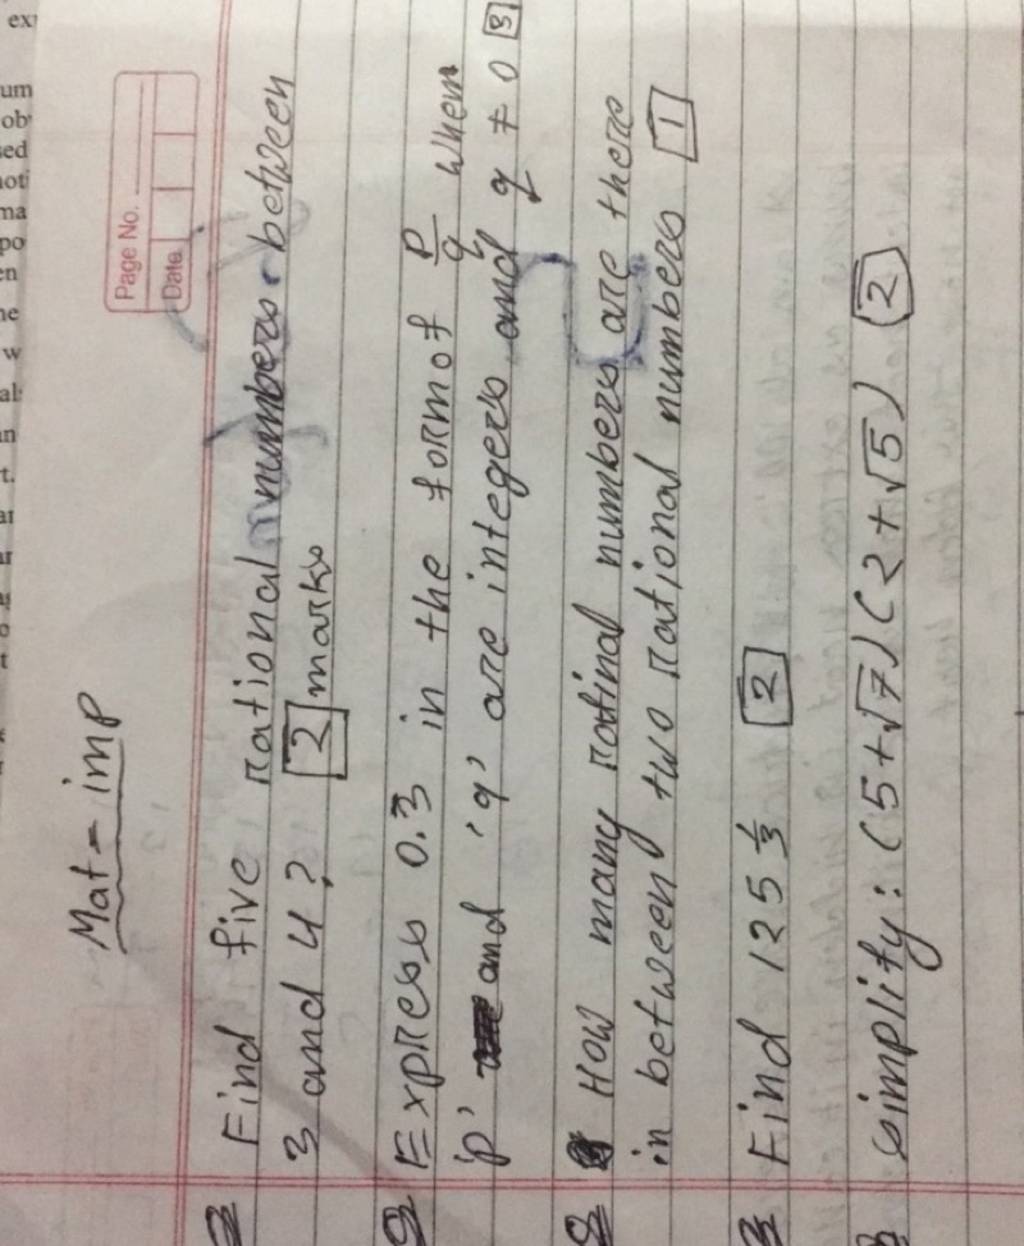 Page No.
Date
Mat - imp
Find five rational numbers between
3 and 4? 2 marks
Express 0.3 in the form of p/q when
'p' and 'q' are integers and q ≠ 0 3
How many rotinal numbers are there
in between two rational numbers 1
Find 125 1/3 2
simplify: (5+√7) (2+√5) 2